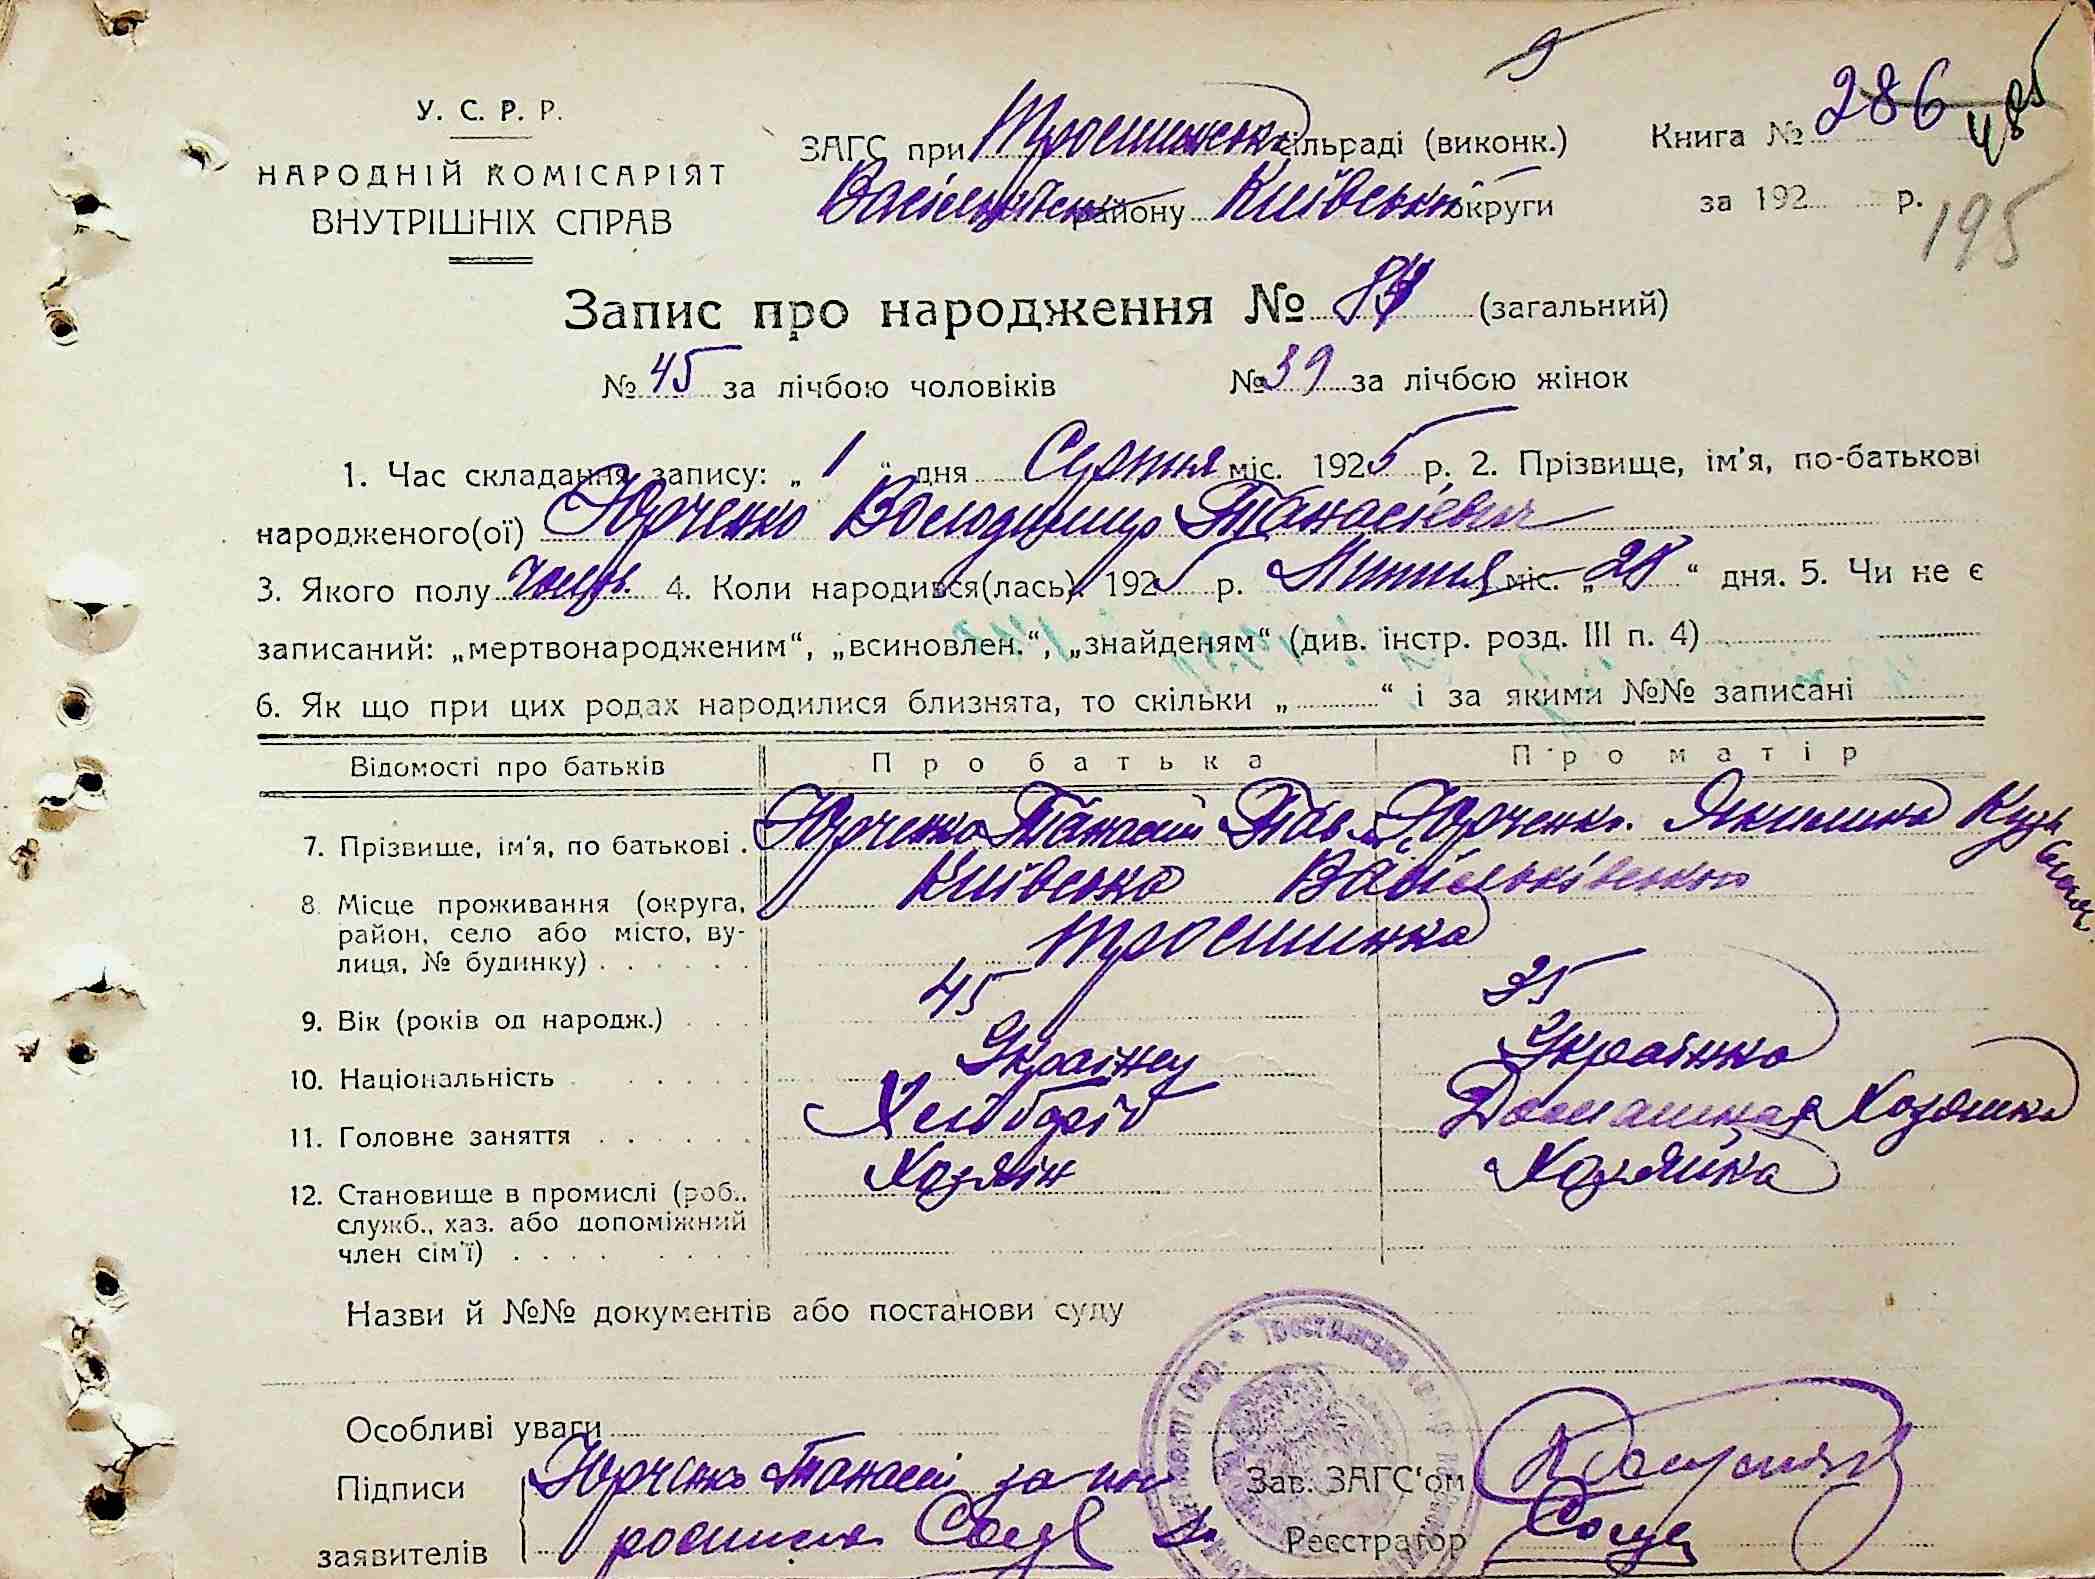 У. С. Р. Р.
НАРОДНІЙ КОМІСАРІЯТ
ВНУТРІШНІХ СПРАВ
ЗАГС при Тростинській сільраді (виконк.)
Васильківськ району Київської округи
Книга № 286
485
за 192 р.
195
Запис про народження № 84 (загальний)
№ 45 за лічбою чоловіків № 39 за лічбою жінок
1. Час складання запису: „ 1 “ дня Серпня міс. 1925 р. 2. Прізвище, ім'я, по-батькові
народженого(ої) Юрченко Володимир Танасієвич
3. Якого полу чолов. 4. Коли народився(лась). 1925 р. Липня міс. „ 28 “ дня. 5. Чи не є
записаний: „мертвонародженим“, „всиновлен.“, „знайденям“ (див. інстр. розд. III п. 4)
6. Як що при цих родах народилися близнята, то скільки „ “ і за якими №№ записані
Відомості про батьків Про батька Про матір
7. Прізвище, ім'я, по батькові . Юрченко Танасій Пав Юрченко Якилина Кузь
8. Місце проживання (округа, район, село або місто, вулиця, № будинку) . . . . . . Київська Васильківського
Тростинка
9. Вік (років од народж.) . . . 45 35
10. Національність . . . . . . Українец Українка
11. Головне заняття . . . . . . Хлібороб Домашная Хозяйка
12. Становище в промислі (роб., служб., хаз. або допоміжний член сім'ї) . . . . . . . . . Хозяїн Хозяйка
Назви й №№ документів або постанови суду
Особливі уваги
Підписи заявителів Юрченко Танасій за
росписа
Зав. ЗАГС'ом
Реєстратор